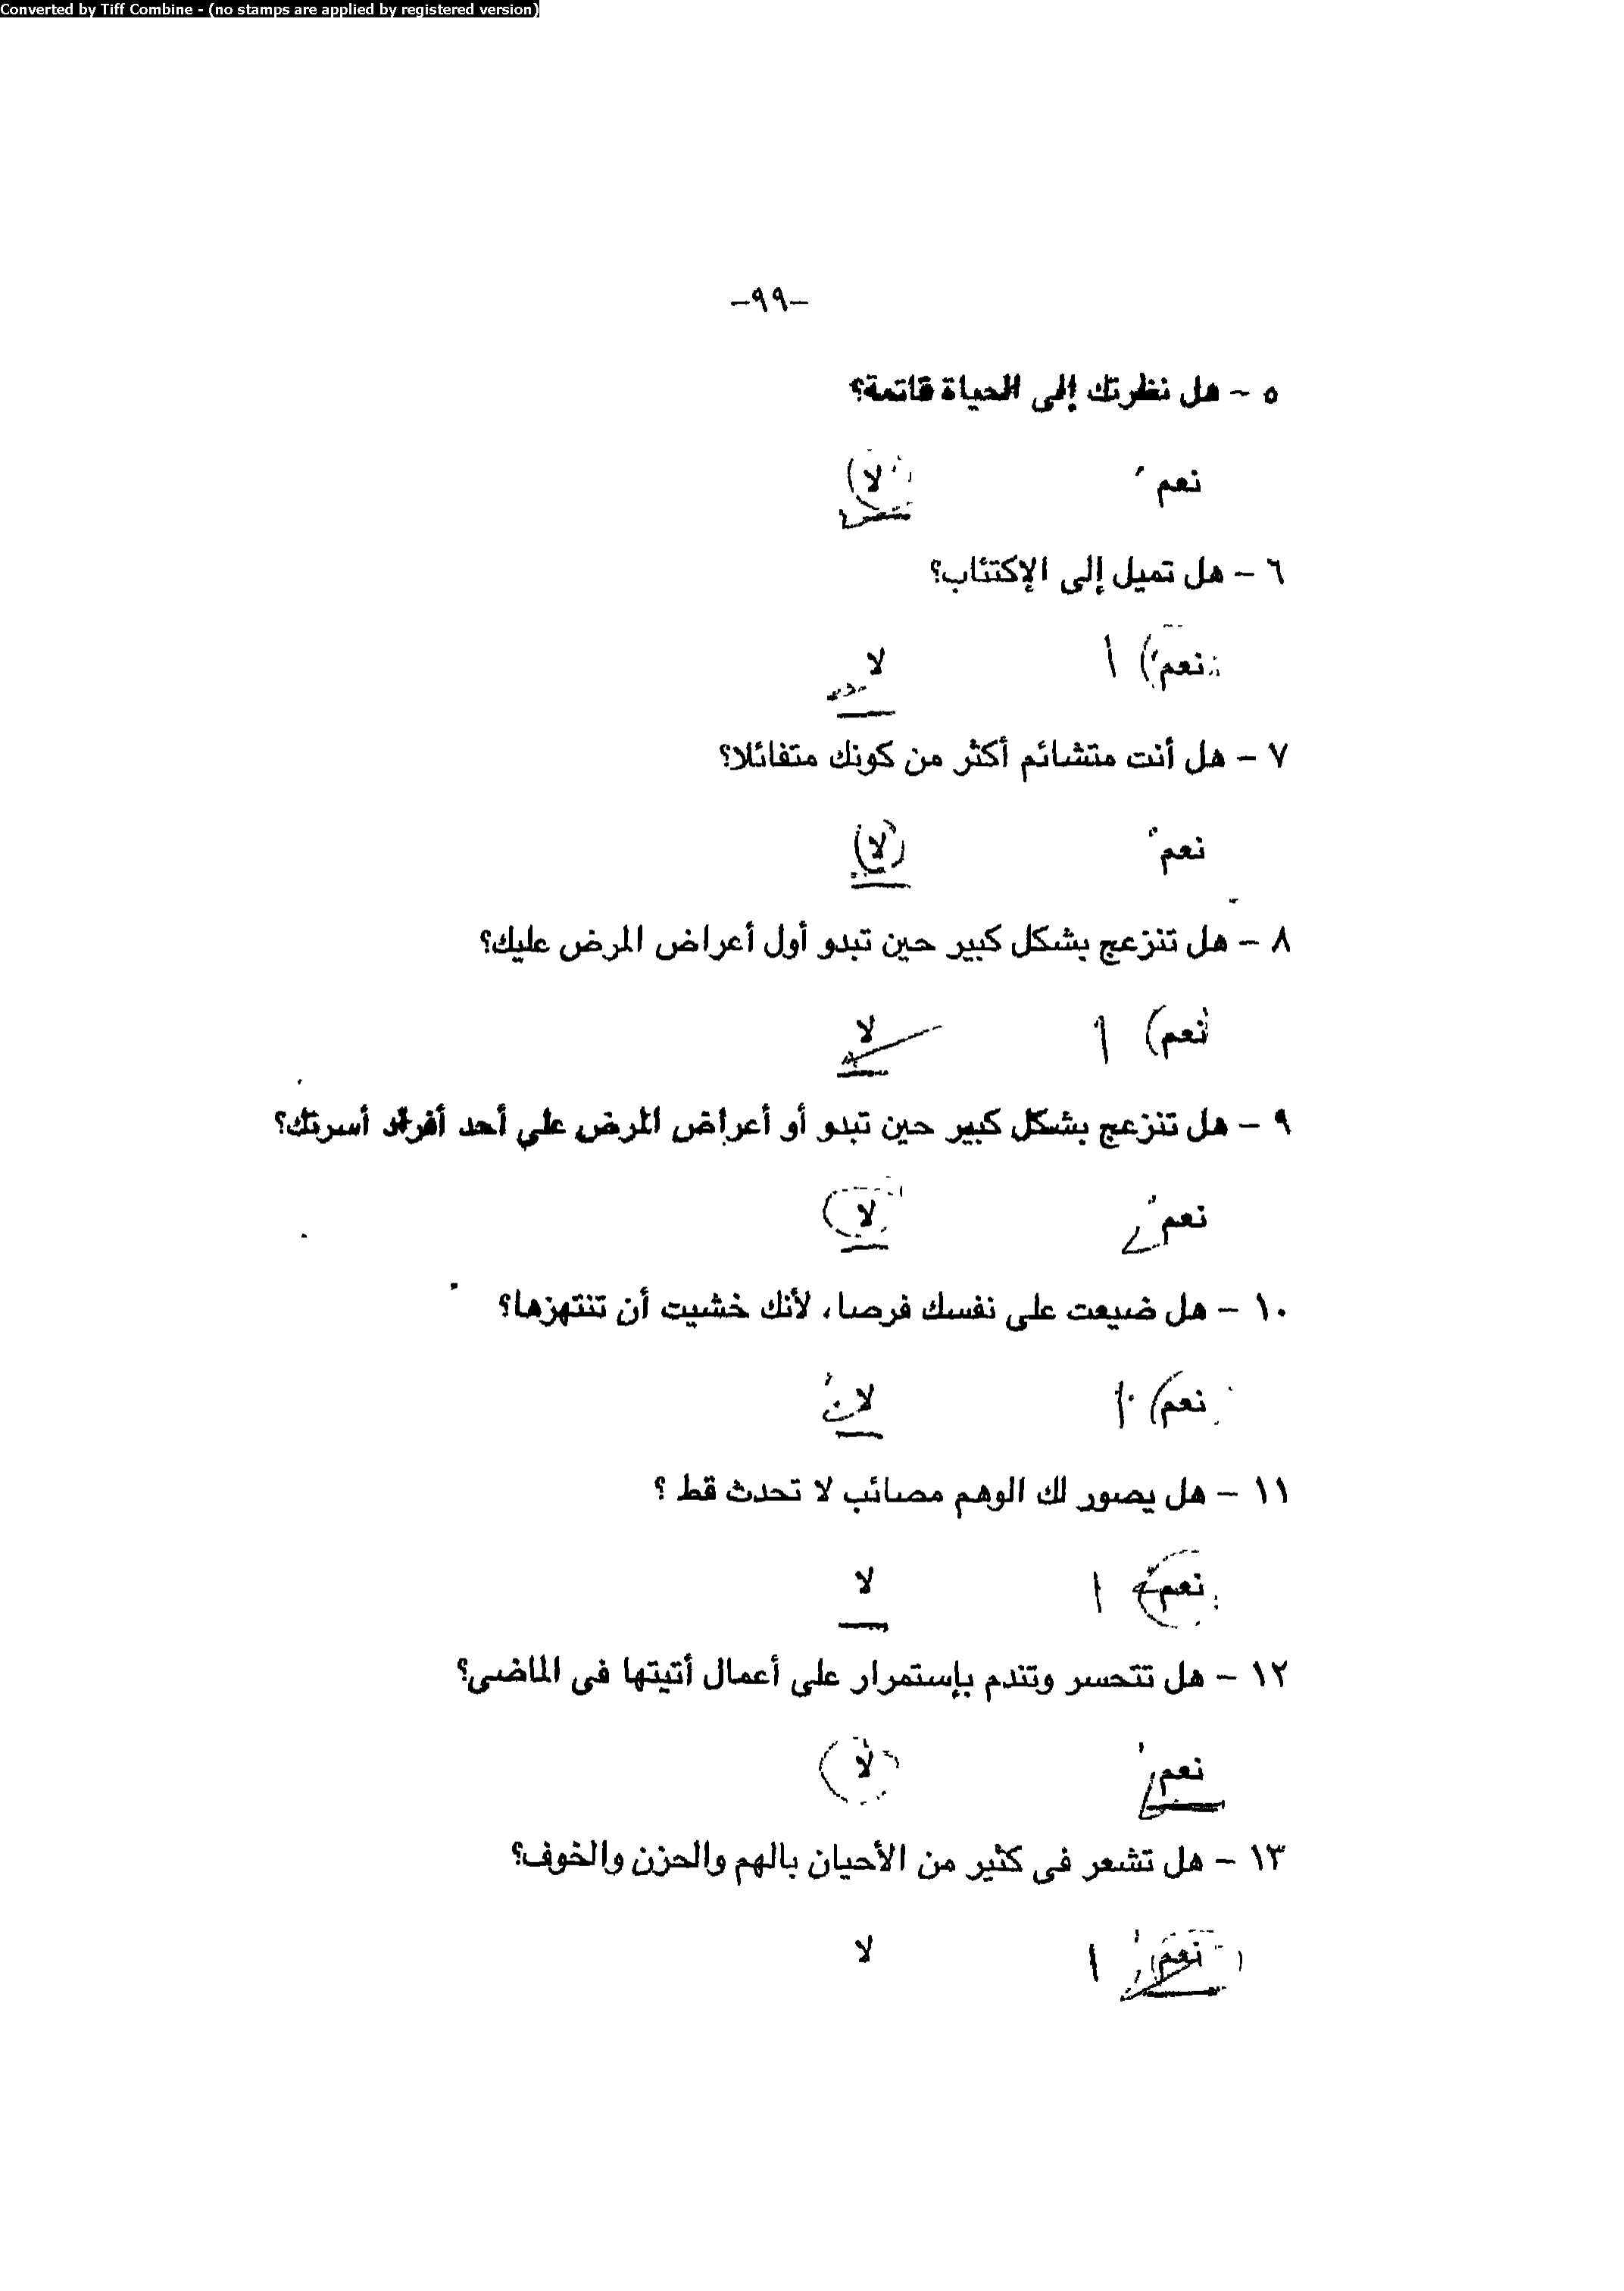 Converted by Tiff Combine - (no stamps are applied by registered version)
-٩٩-
٥ - هل نظرتك إلى الحياة قاتمة؟
نعم لا
٦ - هل تميل إلى الإكتئاب؟
نعم ا لا
٧ - هل أنت متشائم أكثر من كونك متفائلا؟
نعم لا
٨ - هل تنزعج بشكل كبير حين تبدو أول أعراض المرض عليك؟
نعم ا لا
٩ - هل تنزعج بشكل كبير حين تبدو أو أعراض المرض علي أحد أفراد أسرتك؟
نعم لا
١٠ - هل ضيعت على نفسك فرصا، لأنك خشيت أن تنتهزها؟
نعم ا لا
١١ - هل يصور لك الوهم مصائب لا تحدث قط ؟
نعم ا لا
١٢ - هل تتحسر وتندم بإستمرار على أعمال أتيتها فى الماضى؟
نعم لا
١٣ - هل تشعر فى كثير من الأحيان بالهم والحزن والخوف؟
نعم ا لا